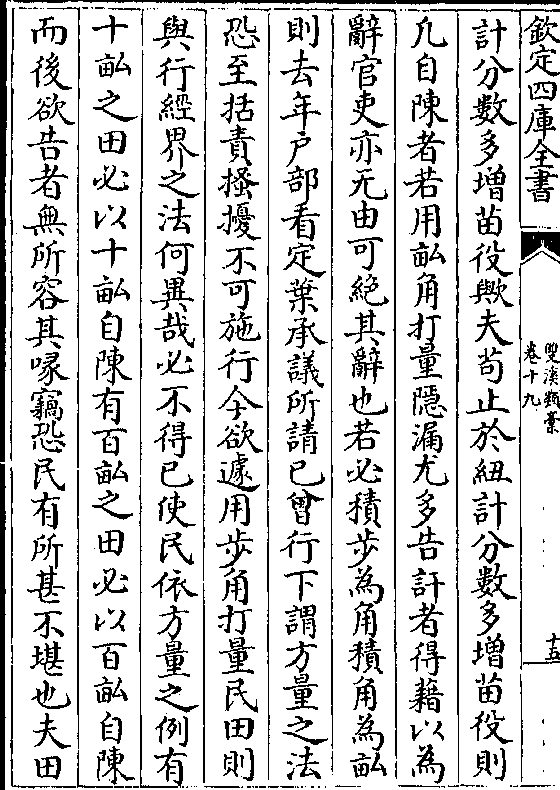 欽定四庫全書
雙溪類稾
卷十九
十五
計分數多增苗役歟夫苟止於紐計分數多增苗役則
凡自陳者若用畝角打量隱漏尤多告訐者得藉以為
辭官吏亦无由可絶其辭也若必積步為角積角為畝
則去年户部看定葉承議所請已曾行下謂方量之法
恐至括責搔擾不可施行今欲遽用步角打量民田則
與行經界之法何異哉必不得已使民依方量之例有
十畝之田必以十畝自陳有百畝之田必以百畝自陳
而後欲告者無所容其喙竊恐民有所甚不堪也夫田